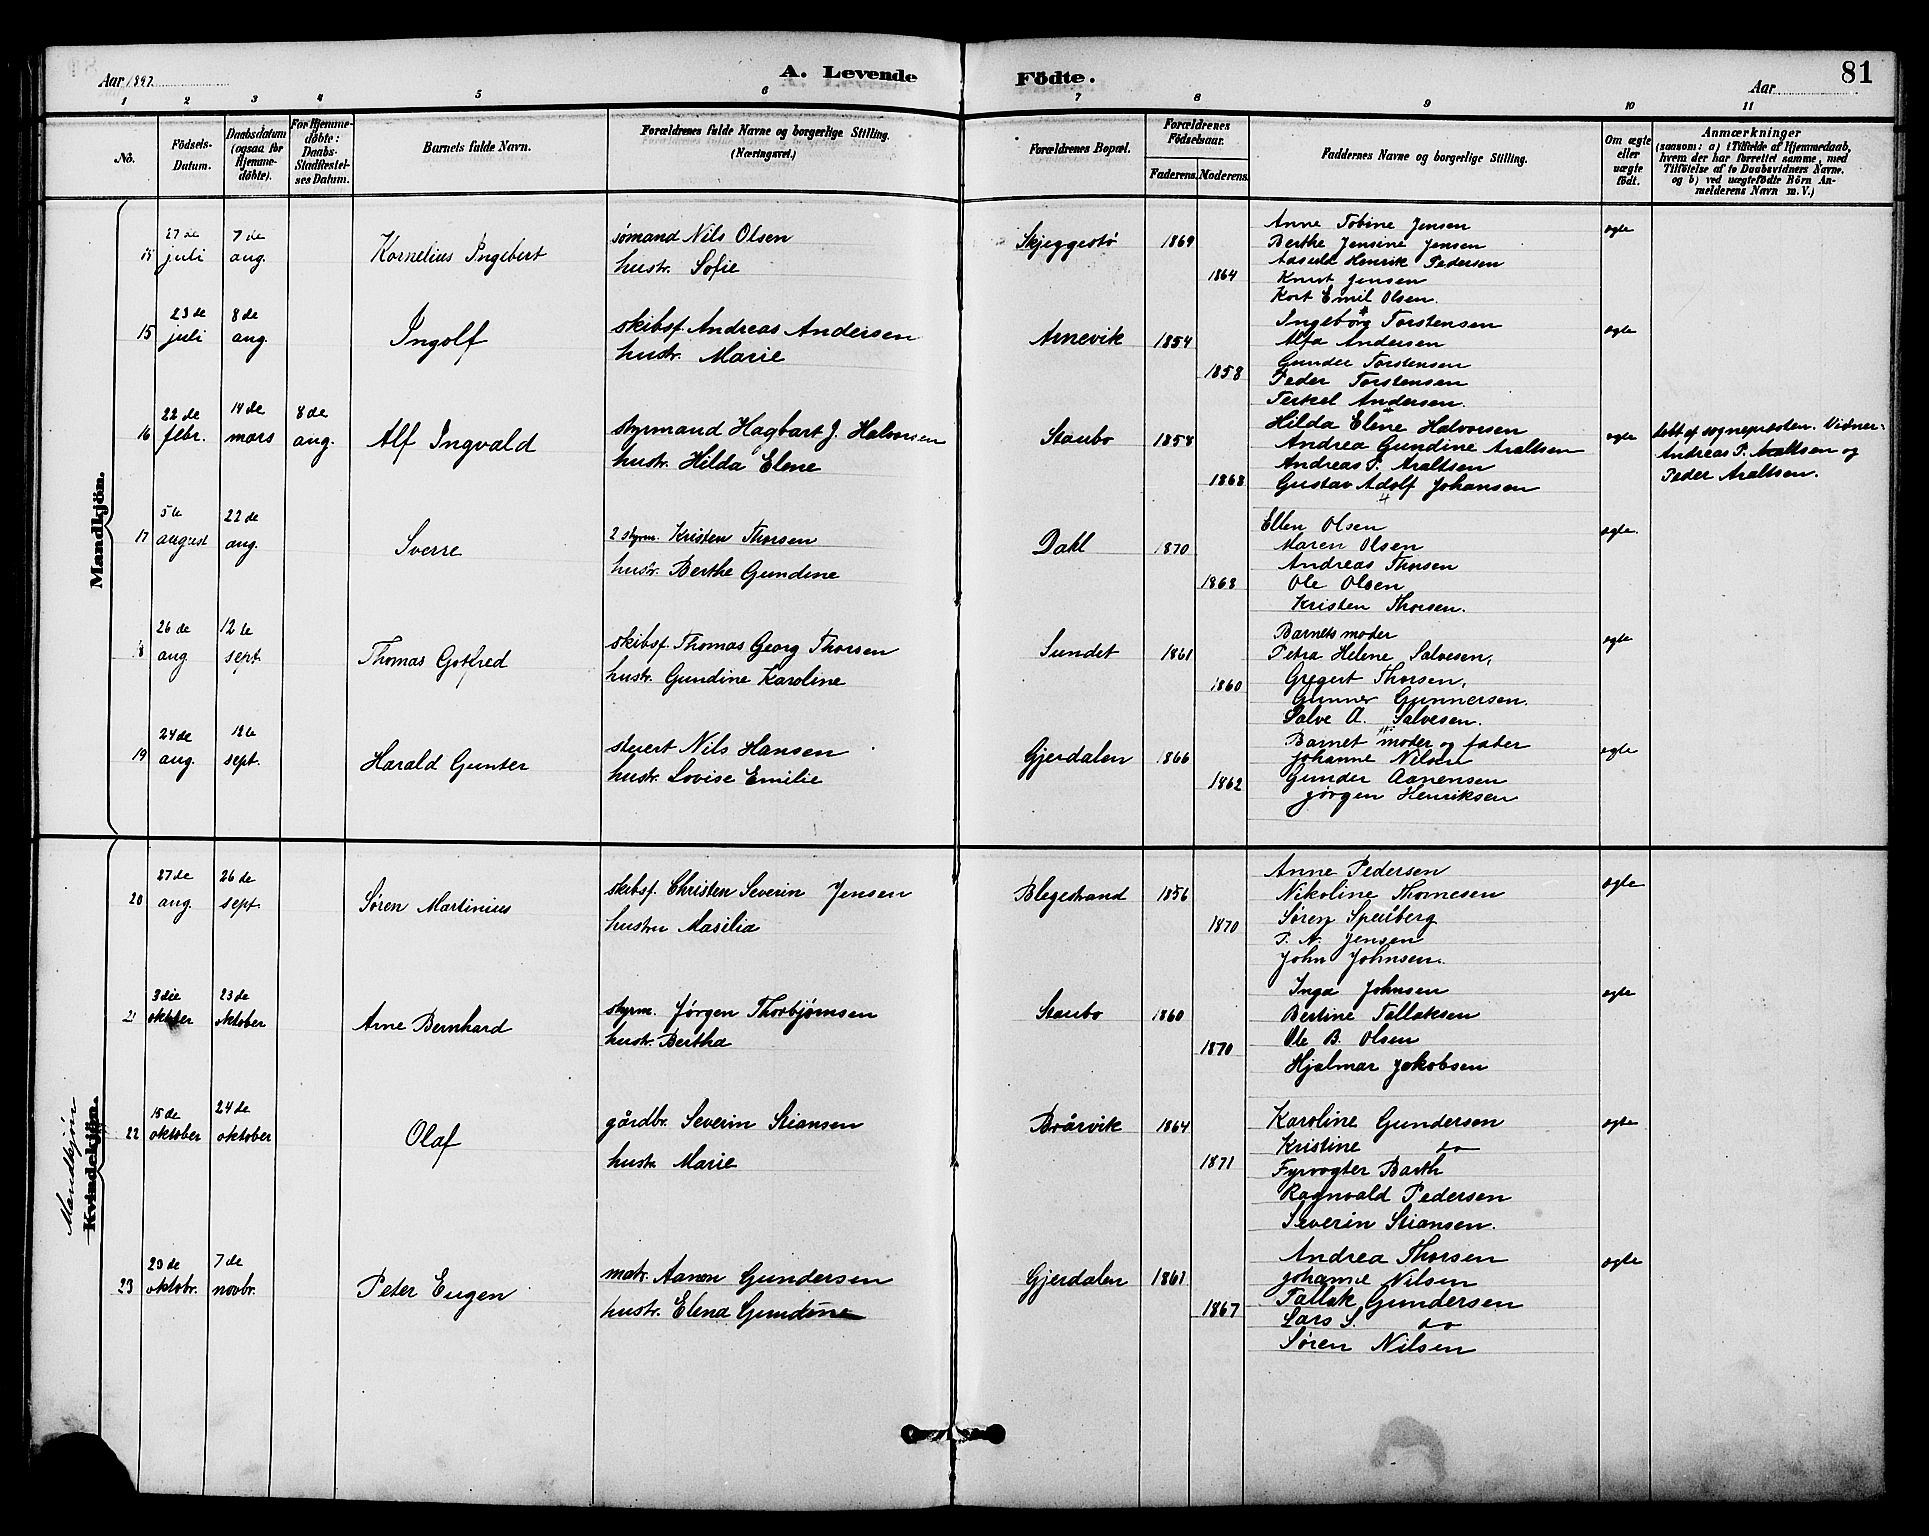 Aar 1897
A. Levende Födte.
Aar
81
1 2 3 4 5 6 7 8 9 10 11
No.
Födsels-
Datum.
Daabsdatum
(ogsaa for
Hjemme-
döbte).
For Hjemme-
döbte:
Daabs-
Stadfæstel-
ses Datum.
Barnets fulde Navn.
Forældrenes fulde Navne og borgerlige Stilling.
(Næringsvei.)
Forældrenes Bopæl.
Forældrenes
Födselsaar.
Faderens. Moderens.
Faddernes Navne og borgerlige Stilling.
Om ægte
eller
uægte
födt.
Anmærkninger
(saasom: a) i Tilfælde af Hjemmedaab,
hvem der har forrettet samme, med
Tilföielse af to Daabsvidners Navne.
og b) ved uægtefödte Börn An-
melderens Navn m. V.)
Mandkjön.
27 de
juli
7 de
aug.
Kornelius Ingebert
sømand Nils Olsen
hustr. Sofie
Skjeggestø
1869
1864
Anne Tobine Jensen
Berthe Jensine Jensen
Henrik Pedersen
Knut Jensen
Kort Emil Olsen.
egte
15
23 de
juli
8 de
aug.
Ingolf
skibsf. Andreas Andersen
hustr. Marie
Arnevik
1854
1858
Ingeborg Torstensen
Alfa Andersen
Gunder Torstensen
Peder Torstensen
Terkel Andersen.
egte
16
22 de
febr.
14 de
mars
8 de
aug.
Alf Ingvald
styrmand Hagbart J. Halvorsen
hustr. Hilda Elene
Staubo
1858
1868
Hilda Elene Halvorsen
Andrea Gundine Araltsen
Andreas P. Araltsen
Gustav Adolf Johansen
egte
døbt af sognepresten. Vidner:
Andreas P. Araltsen og
Peder Araltsen.
17
5te
august
22 de
aug.
Sverre
2 styrm. Kristen Thorsen
hustr. Berthe Gundine
Dahl
1870
1868
Ellen Olsen
Maren Olsen
Andreas Thorsen
Ole Olsen
Kristen Thorsen.
egte.
18
26 de
aug
12 te
sept.
Thomas Gotfred
skibsf. Thomas Georg Thorsen
hustr. Gundine Karoline
Sundet
1861
1860
Barnets moder
Petra Helene Salvesen,
Gregert Thorsen,
Gunner Gunnersen.
Salve A. Salvesen.
egte
19
24 de
aug.
18 te
sept.
Harald Gunter
stuert Nils Hansen
hustr. Lovise Emilie
Gjerdalen
1866
1862
Barnet moder og fader
Johanne Nilsen
Gunder Aanensen
Jørgen Henriksen
egte
Mandkjön
Kvindekjön.
20
27 de
aug.
26 de
sept.
Søren Martinius
skibsf. Christen Severin Jensen
hustru Masilia
Blegestrand
1856
1870
Anne Pedersen
Nikoline Thomesen
Søren Speilberg
P. N. Jensen
John Johnsen.
egte
21
3 die
oktober
23 de
oktober
Arne Bernhard
styrm. Jørgen Thorbjørnsen
hustr. Bertha
Staubo
1860
1870
Inga Johnsen
Bertine Tallaksen
Ole B. Olsen
Hjalmar Jakobsen
egte
22
15 de
oktober
24 de
oktober
Olaf
gårdbr. Severin Stiansen
hustr. Marie
Bråvik
1864
1871
Karoline Gundersen
Kristine do
Fyrvogter Barth
Ragnvald Pedersen
Severin Stiansen.
egte
23
29 de
oktobr.
7 de
novbr.
Peter Eugen
matr. Aanon Gundersen
hustr. Elena Gundine
Gjerdalen
1861
1867
Andrea Thorsen
Johanne Nilsen
Tallak Gundersen
Lars S. do
Søren Nilsen
egte